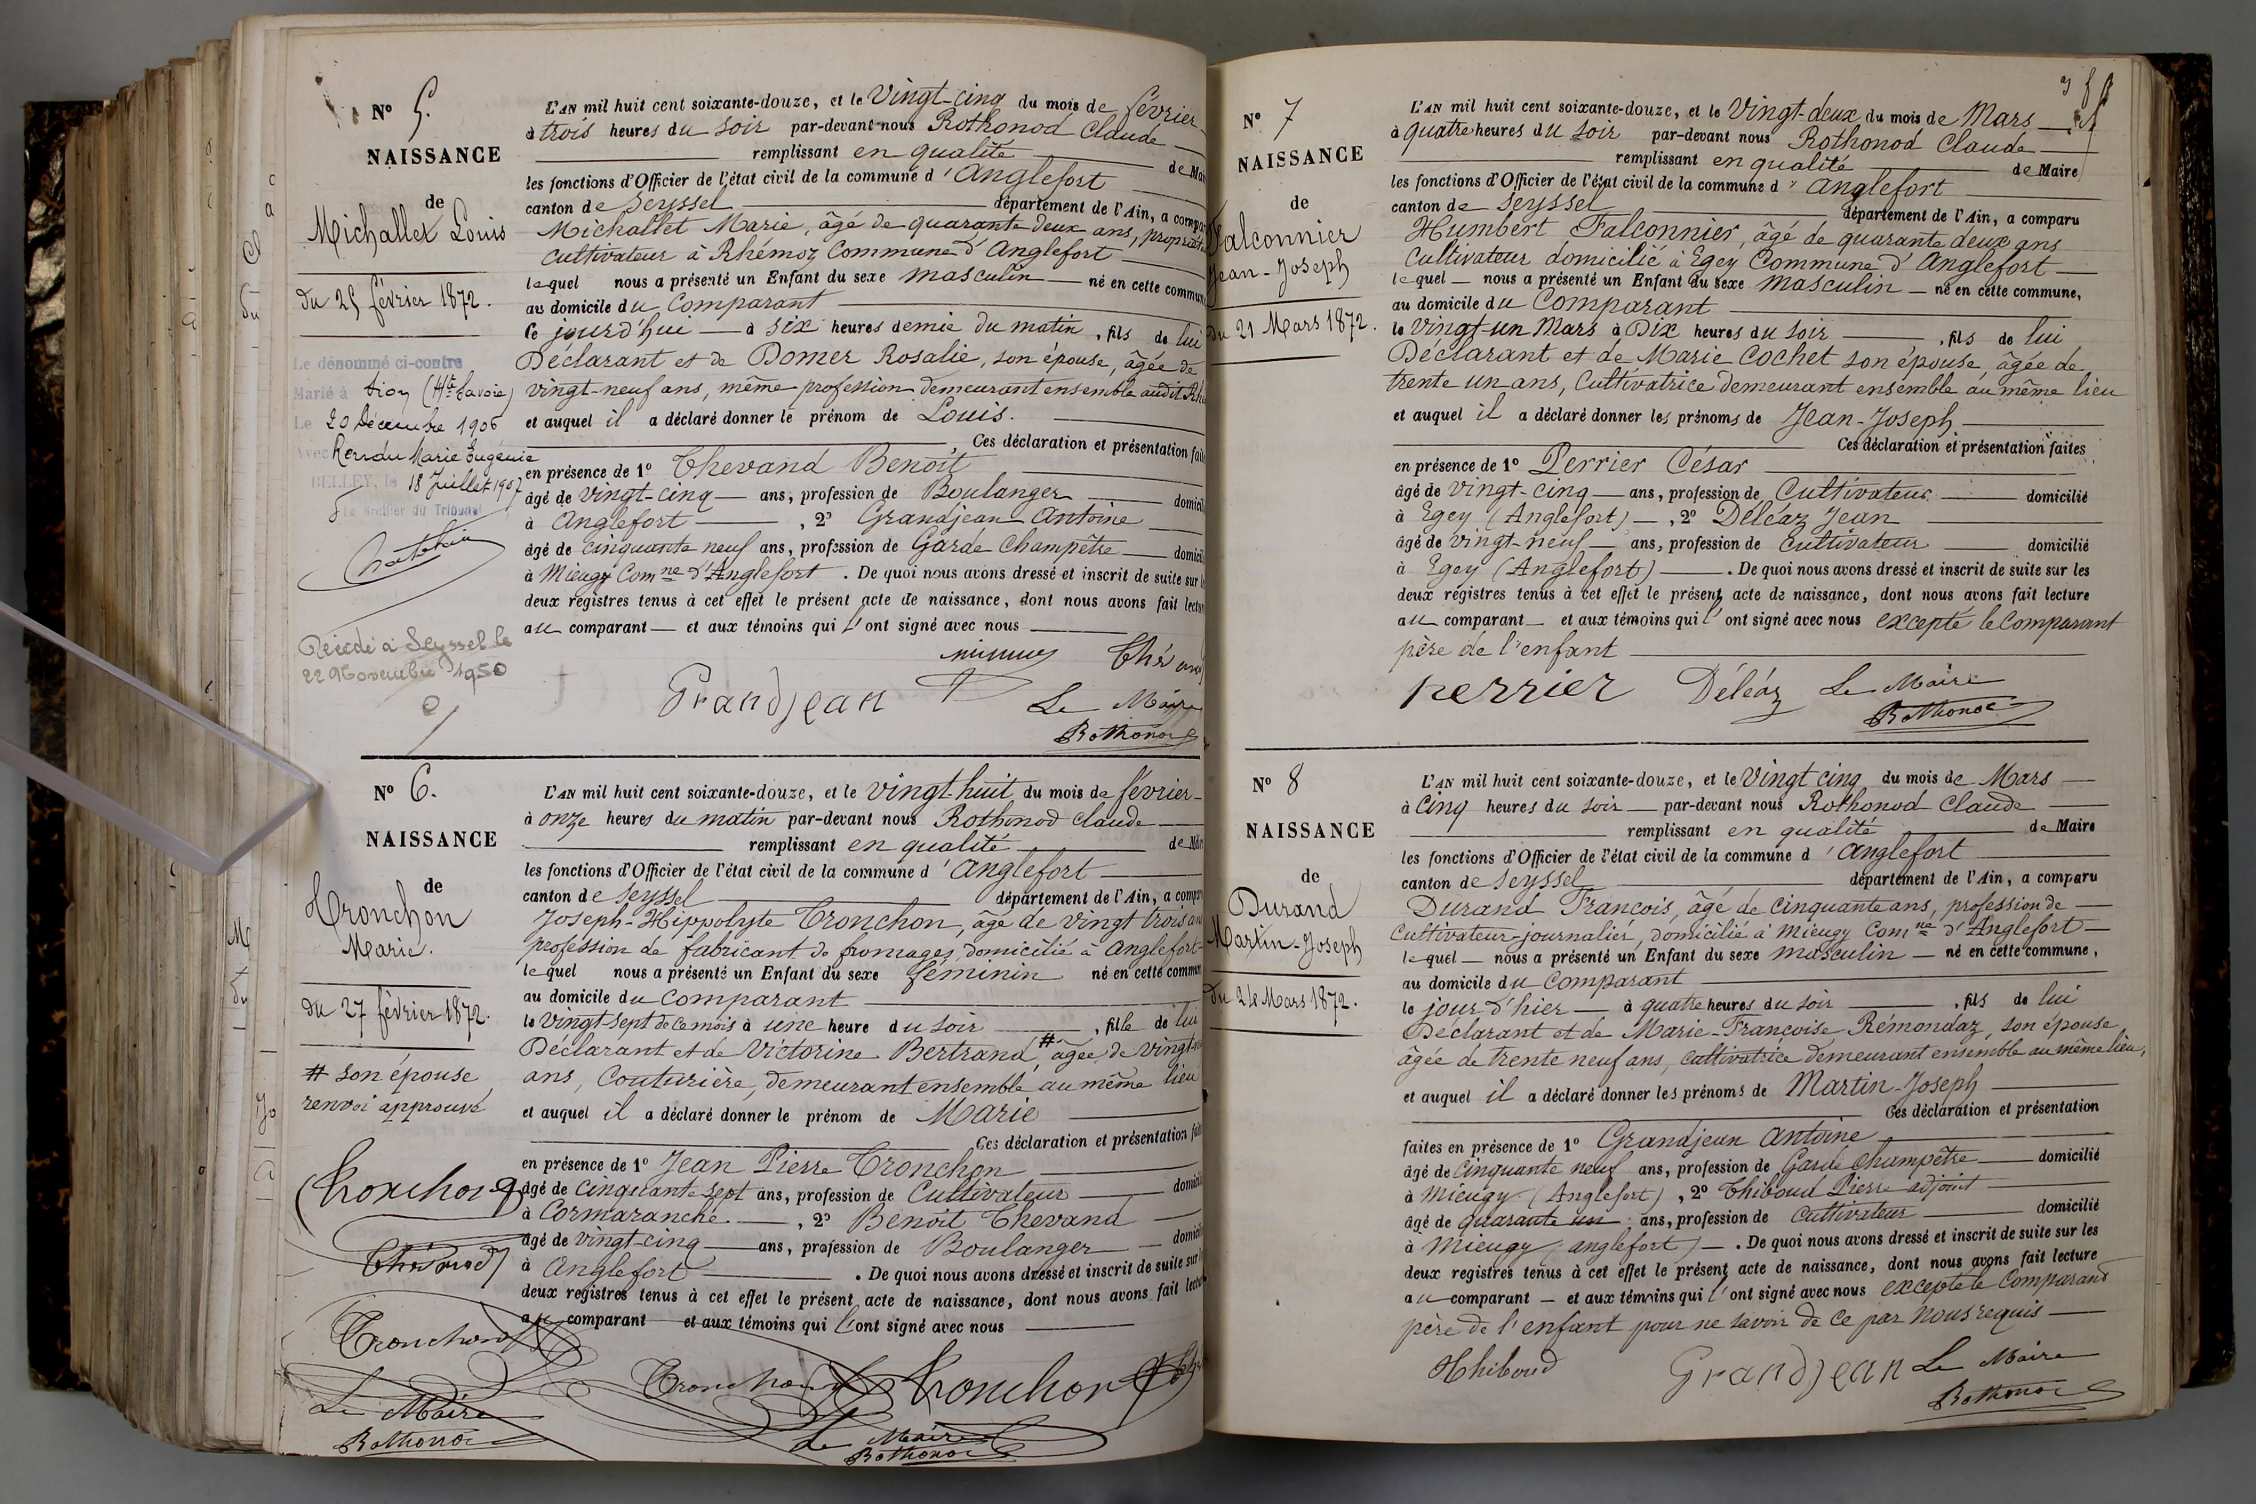 N° 5.
NAISSANCE
de
Michallet Louis
du 25 février 1872.
Le dénommé ci-contre
Marié à (Hte Savoie)
Le 20 Décembre 1906
avec Marie Eugénie
BELLEY, le 18 Juillet 1907
Le Greffier du Tribunal
Décédé à Seyssel le
22 Novembre 1950
L'AN mil huit cent soixante-douze, et le Vingt-cinq du mois de février
à trois heures du soir par-devant nous Rothonod Claude
remplissant en qualité de Mai
les fonctions d'Officier de l'état civil de la commune d'Anglefort
canton de Seyssel département de l'Ain, a compar
Michallet Marie, âgé de quarante deux ans, propriét
cultivateur à Rhémoz Commune d'Anglefort
lequel nous a présenté un Enfant du sexe masculin né en cette commun
au domicile du Comparant
Ce jourd'hui à six heures demie du matin, fils de lui
Déclarant et de Domer Rosalie, son épouse, âgée de
vingt-neuf ans, même profession demeurant ensemble audit Rhé
et auquel il a déclaré donner le prénom de Louis.
Ces déclaration et présentation fait
en présence de 1° Thevand Benoît
âgé de vingt-cinq ans, profession de Boulanger domicil
à Anglefort, 2° Grandjean Antoine
âgé de cinquante neuf ans, profession de Garde Champêtre domicil
à Mieugy Comne d'Anglefort. De quoi nous avons dressé et inscrit de suite sur l
deux registres tenus à cet effet le présent acte de naissance, dont nous avons fait lectu
au comparant et aux témoins qui l'ont signé avec nous
Grandjean
Le Maire
Rothonod
N° 6.
NAISSANCE
de
Tronchon
Marie.
du 27 février 1872.
# son épouse
renvoi approuvé
Tronchon
Thevand
Tronchon
Le Maire
Rothonod
L'AN mil huit cent soixante-douze, et le vingt-huit du mois de février
à onze heures du matin par-devant nous Rothonod Claude
remplissant en qualité de Mai
les fonctions d'Officier de l'état civil de la commune d'Anglefort
canton de Seyssel département de l'Ain, a compar
Joseph-Hippolyte Tronchon, âgé de vingt trois an
profession de fabricant de fromages, domicilié à Anglefort
lequel nous a présenté un Enfant du sexe féminin né en cette commun
au domicile du comparant
le vingt-sept de ce mois à une heure du soir, fille de lui
Déclarant et de Victorine Bertrand # âgée de vingt-
ans, Couturière, demeurant ensemble au même lieu
et auquel il a déclaré donner le prénom de Marie
Ces déclaration et présentation fait
en présence de 1° Jean Pierre Tronchon
âgé de cinquante-sept ans, profession de Cultivateur domicil
à Cormaranche, 2° Benoit Thevand
âgé de vingt-cinq ans, profession de Boulanger domicil
à Anglefort. De quoi nous avons dressé et inscrit de suite sur l
deux registres tenus à cet effet le présent acte de naissance, dont nous avons fait lectu
au comparant et aux témoins qui l'ont signé avec nous
Tronchon Tronchon
Le Maire
Rothonod
N° 7
NAISSANCE
de
Falconnier
Jean-Joseph
du 21 Mars 1872.
L'AN mil huit cent soixante-douze, et le Vingt-deux du mois de Mars
à quatre heures du soir par-devant nous Rothonod Claude
remplissant en qualité de Maire
les fonctions d'Officier de l'état civil de la commune d'Anglefort
canton de Seyssel département de l'Ain, a comparu
Humbert Falconnier, âgé de quarante deux ans
Cultivateur domicilié à Egey Commune d'Anglefort
lequel nous a présenté un Enfant du sexe masculin né en cette commune,
au domicile du Comparant
le vingt-un Mars à Dix heures du soir, fils de lui
Déclarant et de Marie Cochet son épouse, âgée de
trente un ans, Cultivatrice demeurant ensemble au même lieu
et auquel il a déclaré donner les prénoms de Jean-Joseph.
Ces déclaration et présentation faites
en présence de 1° Perrier César
âgé de vingt-cinq ans, profession de Cultivateur domicilié
à Egey (Anglefort), 2° Déléaz Jean
âgé de vingt-neuf ans, profession de Cultivateur domicilié
à Egey (Anglefort). De quoi nous avons dressé et inscrit de suite sur les
deux registres tenus à cet effet le présent acte de naissance, dont nous avons fait lecture
au comparant et aux témoins qui l'ont signé avec nous excepté le Comparant
père de l'enfant
perrier Déléaz Le Maire
Rothonod
N° 8
NAISSANCE
de
Durand
Martin-Joseph
du 24 Mars 1872.
L'AN mil huit cent soixante-douze, et le Vingt cinq du mois de Mars
à Cinq heures du soir par-devant nous Rothonod Claude
remplissant en qualité de Maire
les fonctions d'Officier de l'état civil de la commune d'Anglefort
canton de Seyssel département de l'Ain, a comparu
Durand François, âgé de cinquante ans, profession de
Cultivateur-journalier, domicilié à Mieugy Comne d'Anglefort
lequel nous a présenté un Enfant du sexe masculin né en cette commune,
au domicile du Comparant
le jour d'hier à quatre heures du soir, fils de lui
Déclarant et de Marie-Françoise Rémondaz, son épouse
âgée de trente neuf ans, cultivatrice demeurant ensemble au même lieu,
et auquel il a déclaré donner les prénoms de Martin-Joseph
Ces déclaration et présentation
faites en présence de 1° Grandjean Antoine
âgé de cinquante neuf ans, profession de Garde Champêtre domicilié
à Mieugy (Anglefort), 2° Thiboud Pierre adjoint
âgé de quarante un ans, profession de Cultivateur domicilié
à Mieugy (anglefort). De quoi nous avons dressé et inscrit de suite sur les
deux registres tenus à cet effet le présent acte de naissance, dont nous avons fait lecture
au comparant et aux témoins qui l'ont signé avec nous excepté le Comparant
père de l'enfant pour ne savoir de ce par nous requis
Thiboud Grandjean Le Maire
Rothonod